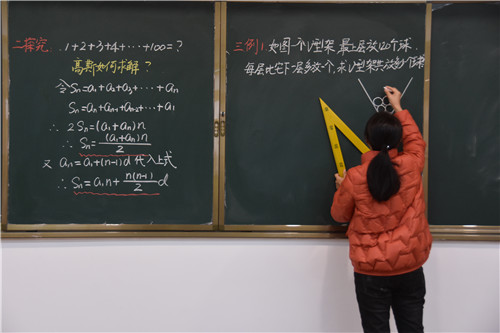 二探究. 1+2+3+4+…+100=?
高斯如何求解?
令 Sn=a1+a2+a3+…+an
Sn=an+an-1+an-2+…+a1
∴ 2Sn=(a1+an)n
∴ Sn=(a1+an)n/2
又 an=a1+(n-1)d 代入上式
∴ Sn=a1n+n(n-1)/2 d
三例1. 如图一个V型架,最上层放120个球,
每层比它下一层多放一个,求V型架共放多少个球